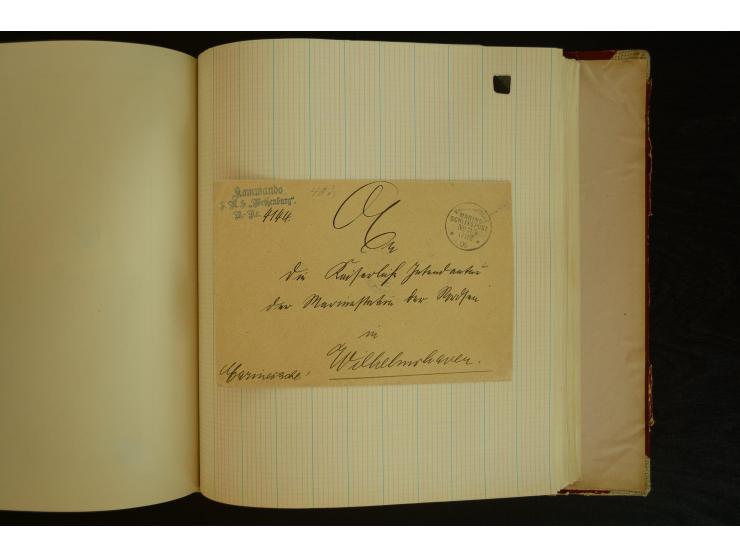 Kommando
S. M. S. „Weißenburg“.
B.-Nr. 4144.
An
die Kaiserliche Intendantur
der Marinestation der Nordsee
in
Wilhelmshaven.
Marinesache!
MARINE-
SCHIFFSPOST